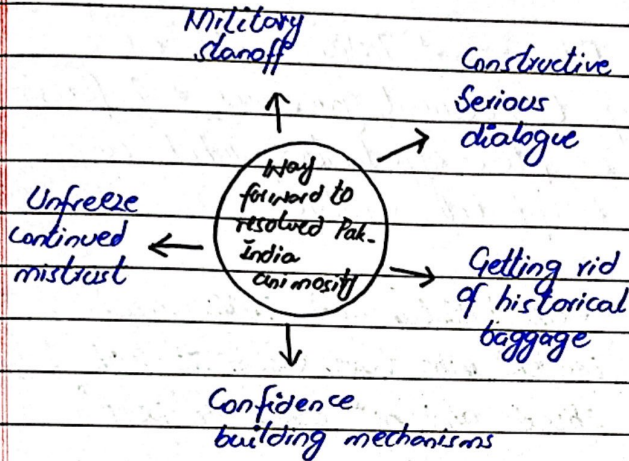 Military
stanoff
Constructive
Serious
dialogue
Way
forward to
resolved Pak-
India
animosity
Unfreeze
continued
mistrust
Getting rid
of historical
baggage
Confidence
building mechanisms